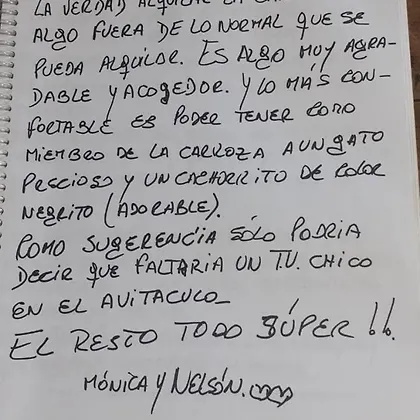 LA VERDAD ALQUILAR
ALGO FUERA DE LO NORMAL QUE SE
PUEDA ALQUILOR. ES ALGO MUY AGRA-
DABLE Y ACOGEDOR. Y LO MÁS CON-
FORTABLE ES PODER TENER COMO
MIEMBRO DE LA CARROZA A UN GATO
PRECIOSO Y UN CACHORRITO DE COLOR
NEGRITO (ADORABLE).
COMO SUGERENCIA SÓLO PODRIA
DECIR QUE FALTARIA UN T.V. CHICO
EN EL AVITACULO_
EL RESTO TODO SÚPER !!.
MÓNICA Y NELSÓN. ♡♡